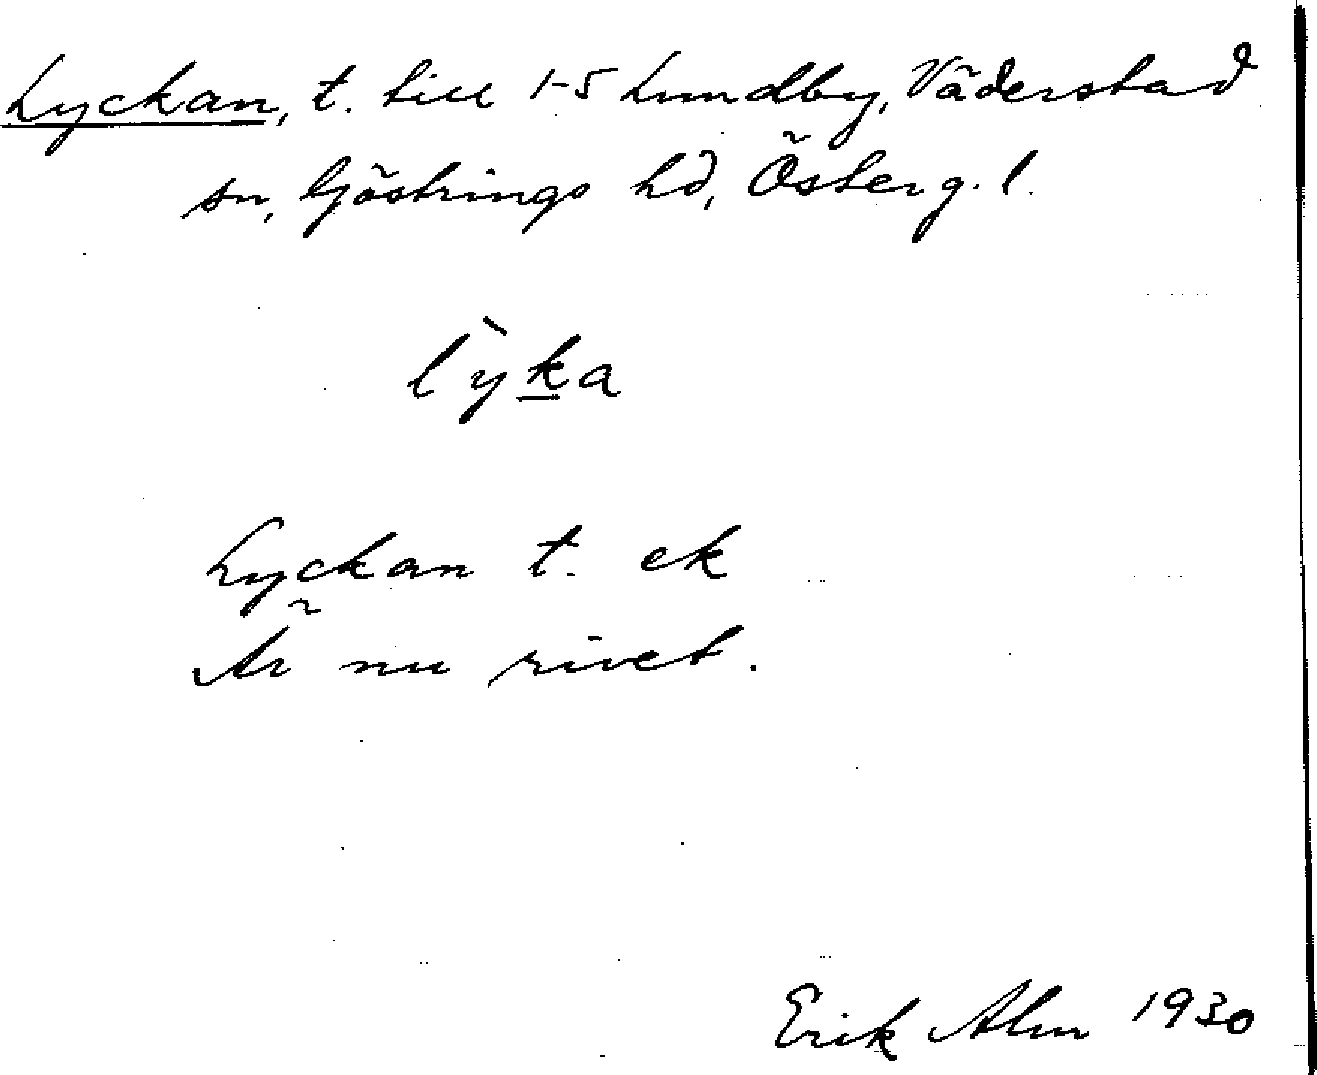 Lyckan, t. till 1-5 Lundby, Väderstad
sn, Göstrings hd, Österg. l.
lỳka
Lyckan t. ek
Är nu rivet.
Erik Alm 1930